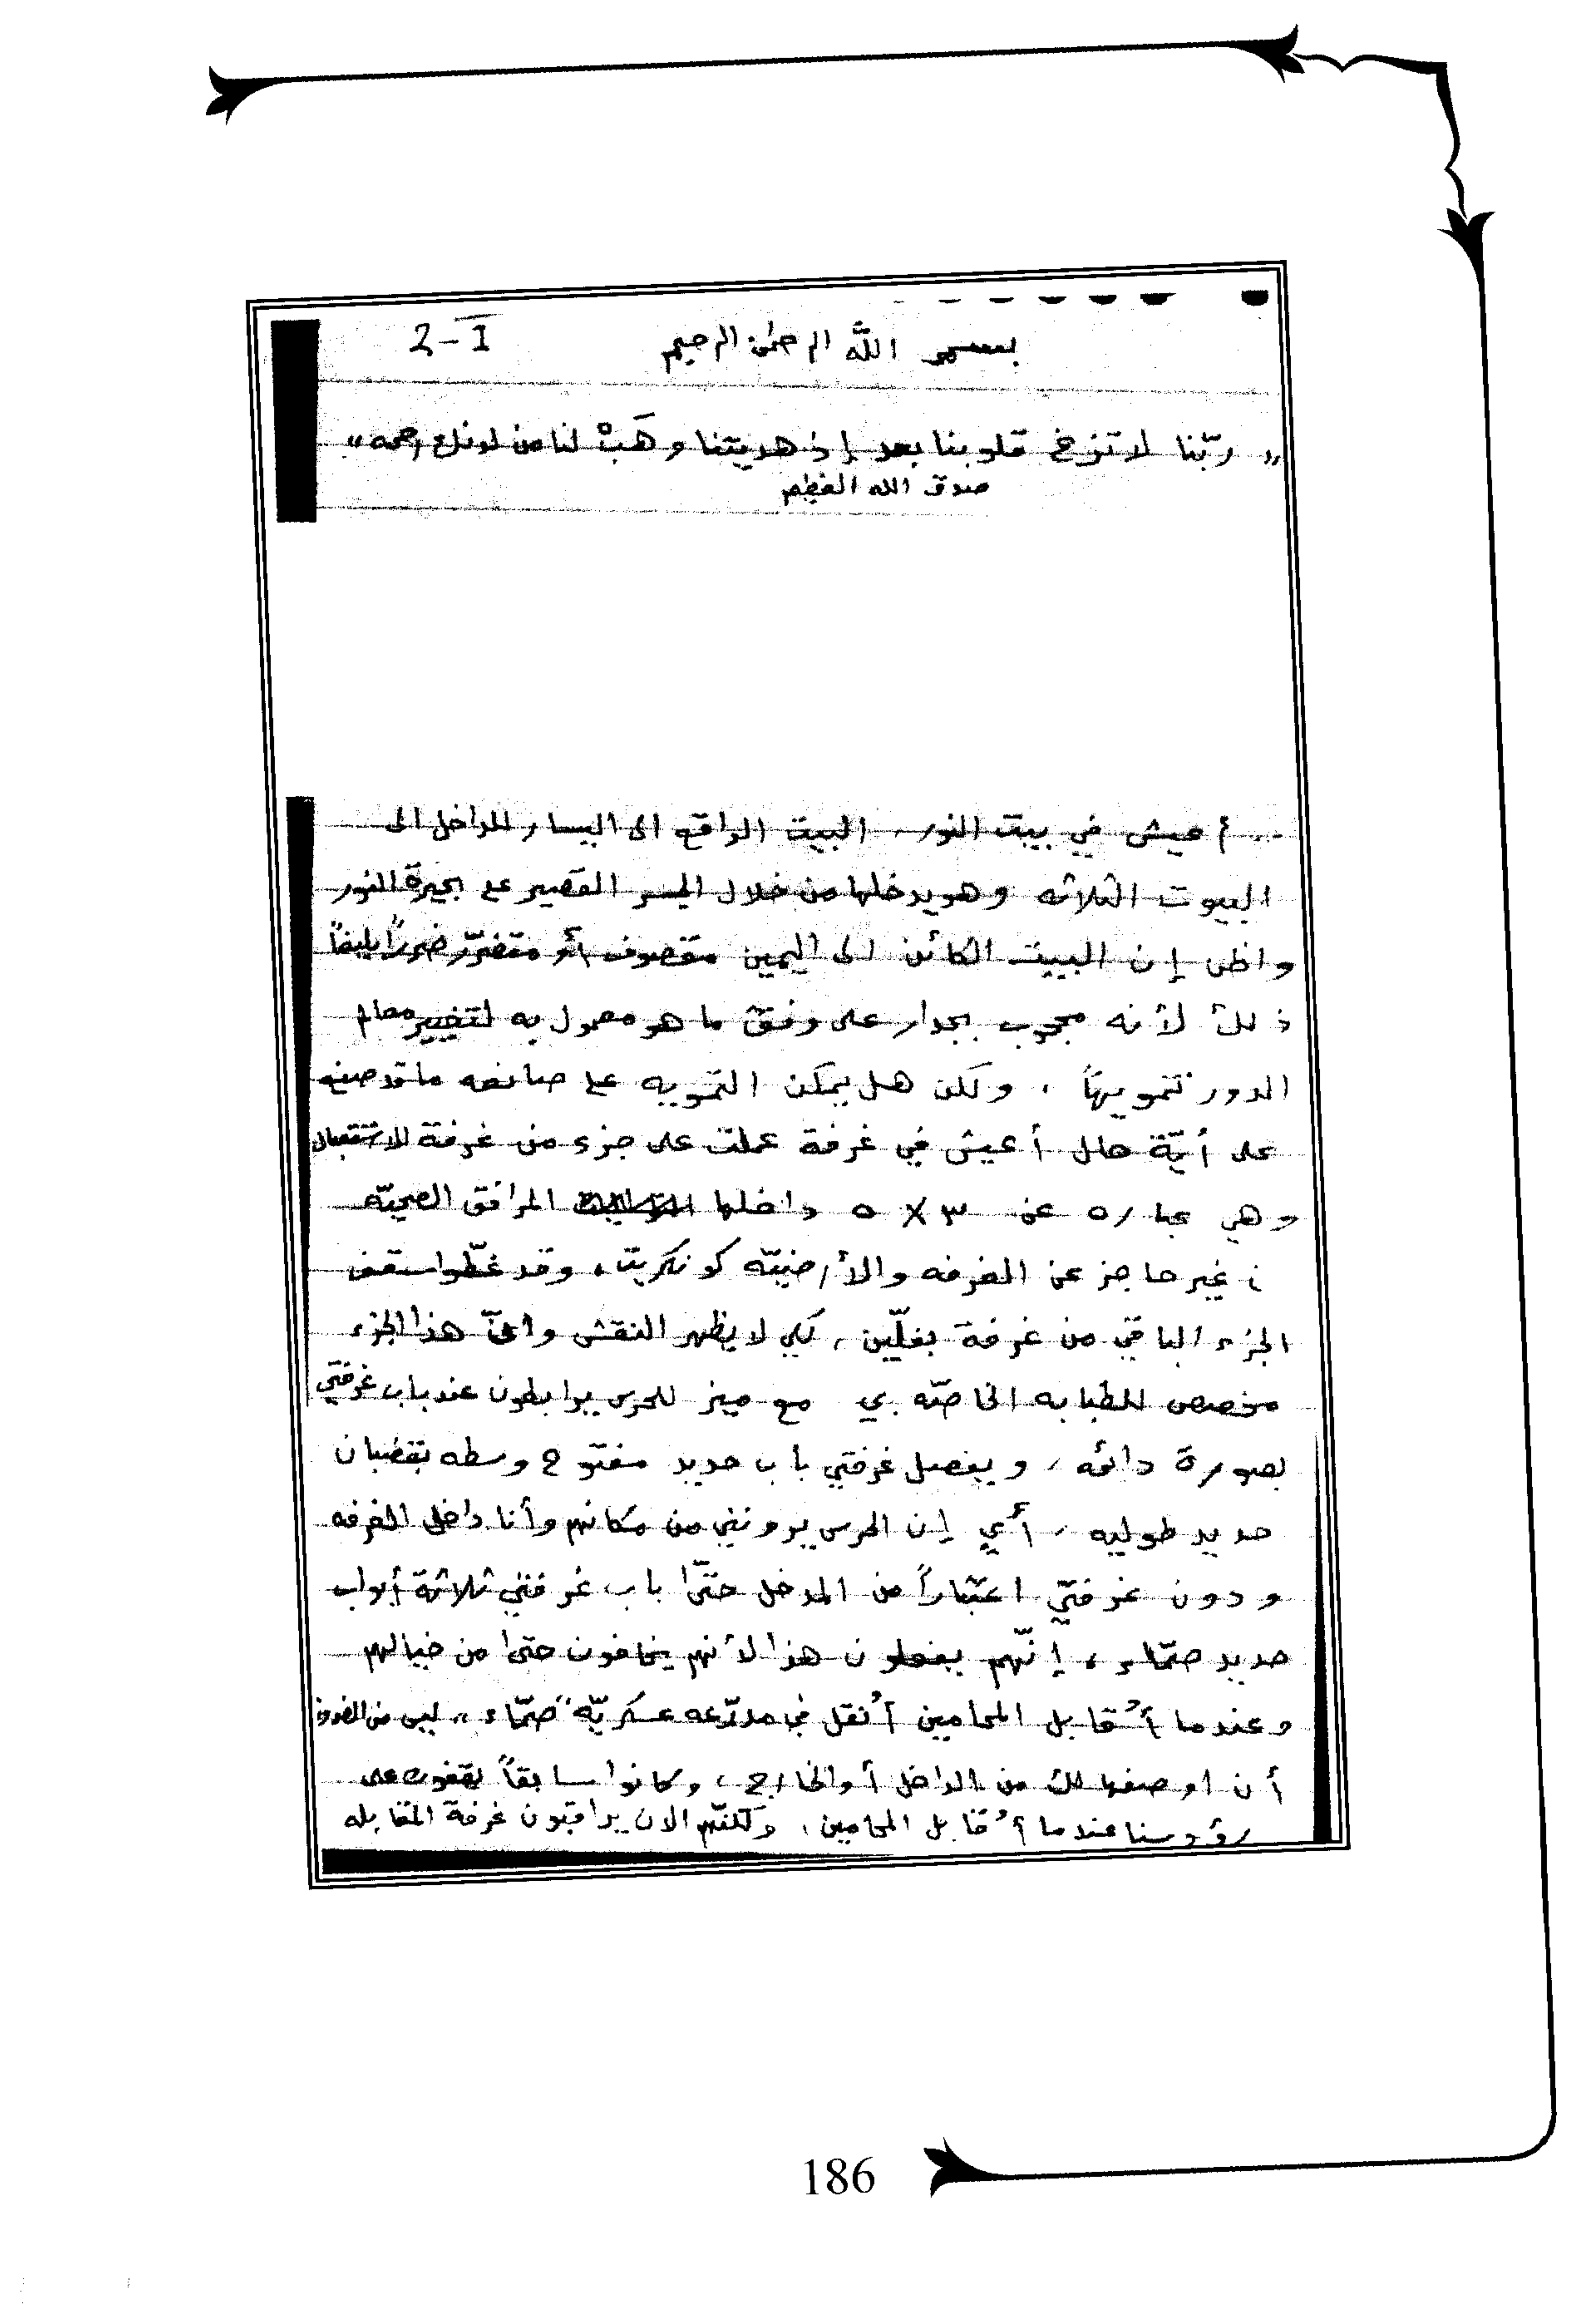 بسم الله الرحمن الرحيم 2-I
" ربّنا لا تزغ قلوبنا بعد إذ هديتنا وهَبْ لنا من لدنك رحمه "
صدق الله العظيم
.. أعيش في بيت النور، البيت الواقع الى اليسار للداخل الى
البيوت الثلاثه وهو يدخلها من خلال الجسر القصير على بحيرة النور
واظن إن البيت الكائن الى اليمين مقصوف أو متضرّر ضرراً بليغاً
ذلك لأنه محجوب بجدار على وفق ما هو معمول به لتغيير معالم
الدور تمويهاً ، ولكن هل يمكن التمويه على صانعه ما قد صنعه
على أيّة حال أعيش في غرفة عملت على جزء من غرفة للاستقبال
وهي عباره عن ٣ X ٥ داخلها المرافق الصحيّه
غير حاجز عن الغرفه والأرضيّه كونكريت، وقد غطّوا سقف
الجزء الباقي من غرفة بفلّين، لكي لا يظهر النقش و هذا الجزء
مخصص للطبابه الخاصّه بي مع ميز للحرس يرابطون عند باب غرفتي
بصورة دائمه، ويفصل غرفتي باب حديد مفتوح وسطه بقضبان
حديد طوليه، أي إن الحرس يرونني من مكانهم وأنا داخل الغرفه
ودون غرفتي اعتباراً من المدخل حتّى باب غرفتي ثلاثة أبواب
حديد صمّاء، إنّهم يفعلون هذا لأنهم يخافون حتى من خيالهم
وعندما أُقابل المحامين أُنقل في مدرّعه عسكريّه "صمّاء" ليس من الضروري
أن اوصفها لك من الداخل أو الخارج، وكانوا سابقاً يقفون على
رؤوسنا عندما أُقابل المحامين، ولكنّهم الان يراقبون غرفة المقابله
186